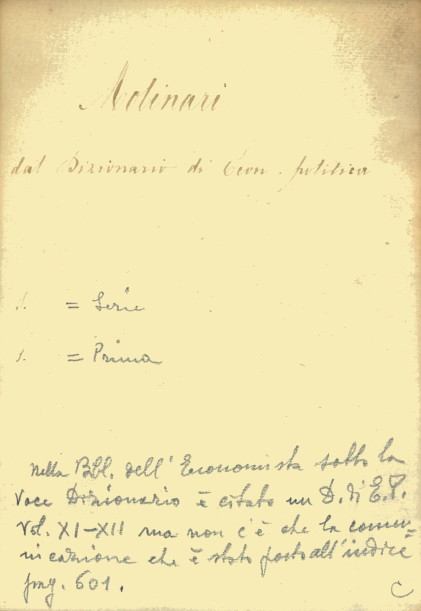 Molinari
dal Dizionario di Econ. politica
1. = Serie
1. = Prima
nella Bbl. dell'Economista sotto la
voce Dizionario è citato un D. di E.P.
Vol. XI-XII ma non c'è che la comu=
nicazione che è stato posto all'indice
pag. 601.
C